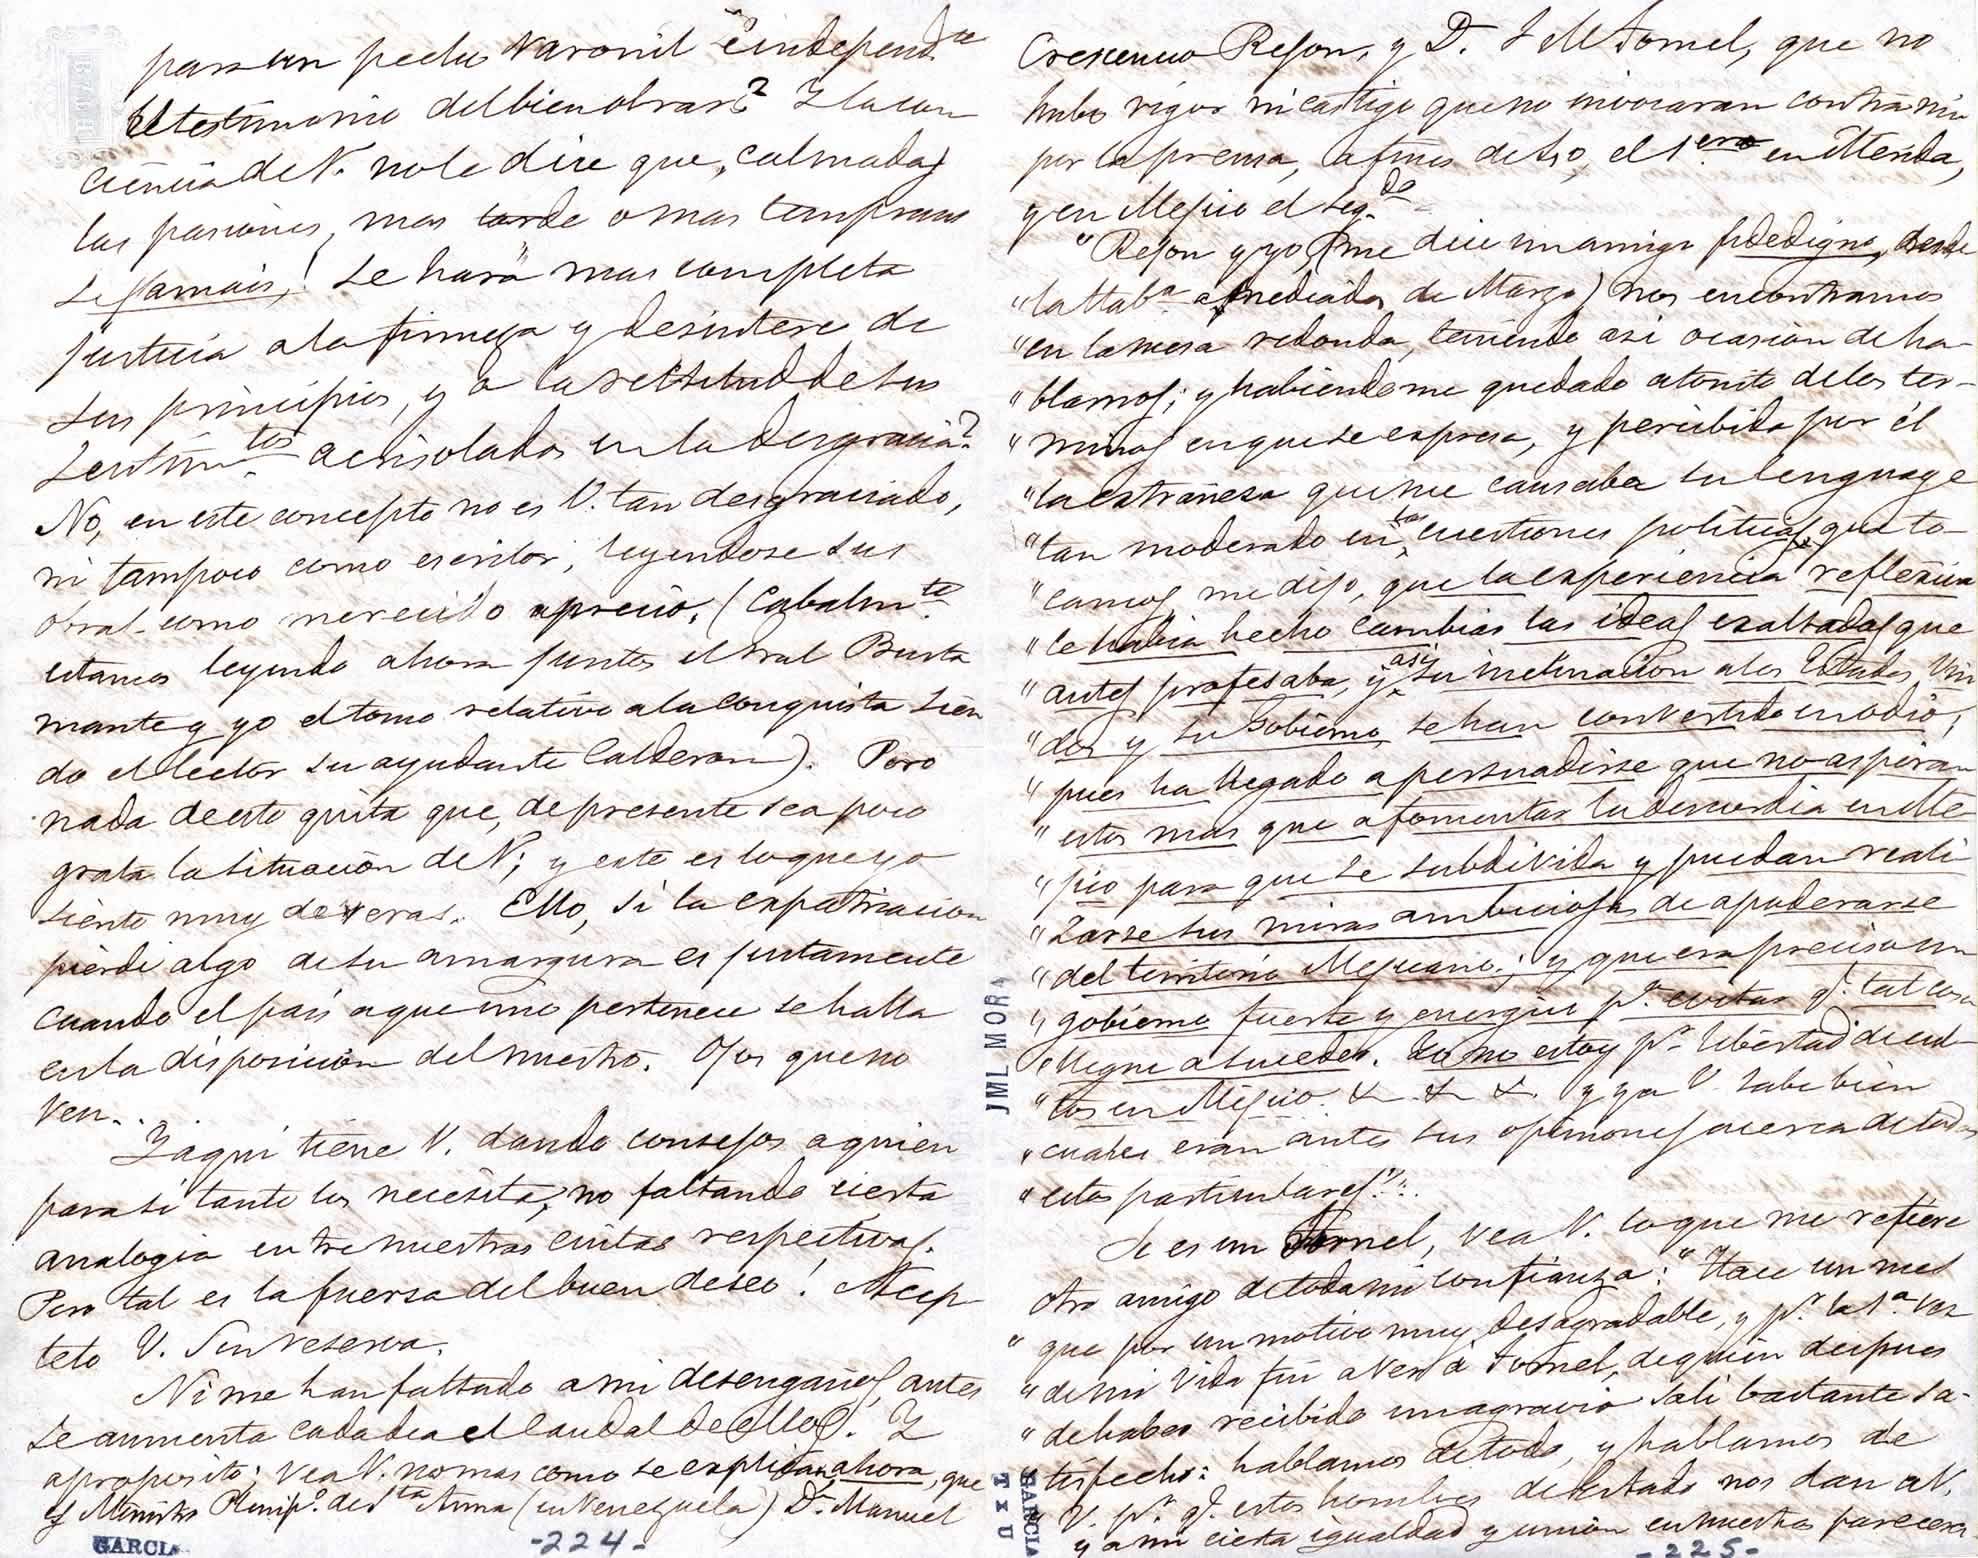 para un pecho varonil é independ.te
el testimonio del bien obrar? Y la con
ciencia de V. no le dice que, calmadas
las pasiones, mas tarde o mas temprano
se hará mas completa
justicia a la firmeza y desinteres de
sus principios, y a la rectitud de sus
sentim.tos acrisolados en la desgracia?
No, en este concepto no es V. tan desgraciado,
ni tampoco como escritor, leyendose sus
obras como merecido aprecio. (Cabalm.te
estamos leyendo ahora juntos el Gral Busta
mante y yo el tomo relativo a la conquista sien
do el lector su ayudante Calderon). Pero
nada de esto quita que, de presente sea poco
grata la situacion de V; y este es lo que yo
siento muy de veras. Ello, si la expatriacion
pierde algo de su amargura es justamente
cuando el pais a que uno pertenece se halla
en la disposicion del nuestro. Ojos que no
ven..
Y aqui tiene V. dando consejos a quien
para si tanto los necesita, no faltando cierta
analogia entre nuestras cuitas respectivas.
Pero tal es la fuersa del buen deseo! Acep
telo V. sin reserva.
Ni me han faltado a mi desengaños, antes
se aumenta cada dia el caudal de ellos. Y
a proposito: vea V. no mas como se explican ahora, que
el Ministro Plenip.o de S.ta Anna (en Venezuela) D. Manuel
GARCIA
-224-
Crescencio Rejon, y D. J M Tornel, que no
hubo rigor ni castigo que no invocaran contra mi
por la prensa, a fines de 40, el 1ero en Merida,
y en Mejico el seg.do
"Rejon y yo, (me dice un amigo fidedigno, desde
"la Hab.a a mediados de Marzo) nos encontramos
"en la mesa redonda, teniendo asi ocasion de ha-
"blarnos; y habiendome quedado atonito de los ter-
"minos en que se expresa, y percibida por él
"la estrañesa que me causaba su lenguage
"tan moderado en las cuestiones politicas que to-
"camos, me dijo, que la experiencia reflexiva
"le habia hecho cambiar las ideas exaltadas que
"antes profesaba, y asi su inclinacion a los Estados Uni
"dos y su Gobierno, se han convertido en odio,
"pues ha llegado a persuadirse que no aspiran
"estos mas que a fomentar la discordia en Me-
"jico para que se subdivida y puedan reali
"zarse sus miras ambiciosas de apoderarse
"del territorio Mejicano; y que era preciso un
"gobierno fuerte y energico p.a evitar q.e tal cosa
"llegue a suceder. Yo no estoy p.r libertad de cul-
"tos en Mejico. & & & y ya V. sabe bien
"cuales eran antes sus opiniones acerca de todos
"estos particulares"..
Si es un Tornel, vea V. lo que me refiere
otro amigo de toda mi confianza: "Hace un mes
"que por un motivo muy desagradable, y p.r la 1.a vez
"de mi vida fui a ver á Tornel, de quien despues
"de haber recibido un agravio sali bastante sa-
"tisfecho: hablamos de todo, y hablamos de
"V. p.r q.e estos hombres de Estado nos dan a V.
"y a mi cierta igualdad y union en nuestros pareceres
JML MORA
GARCIA
-225-